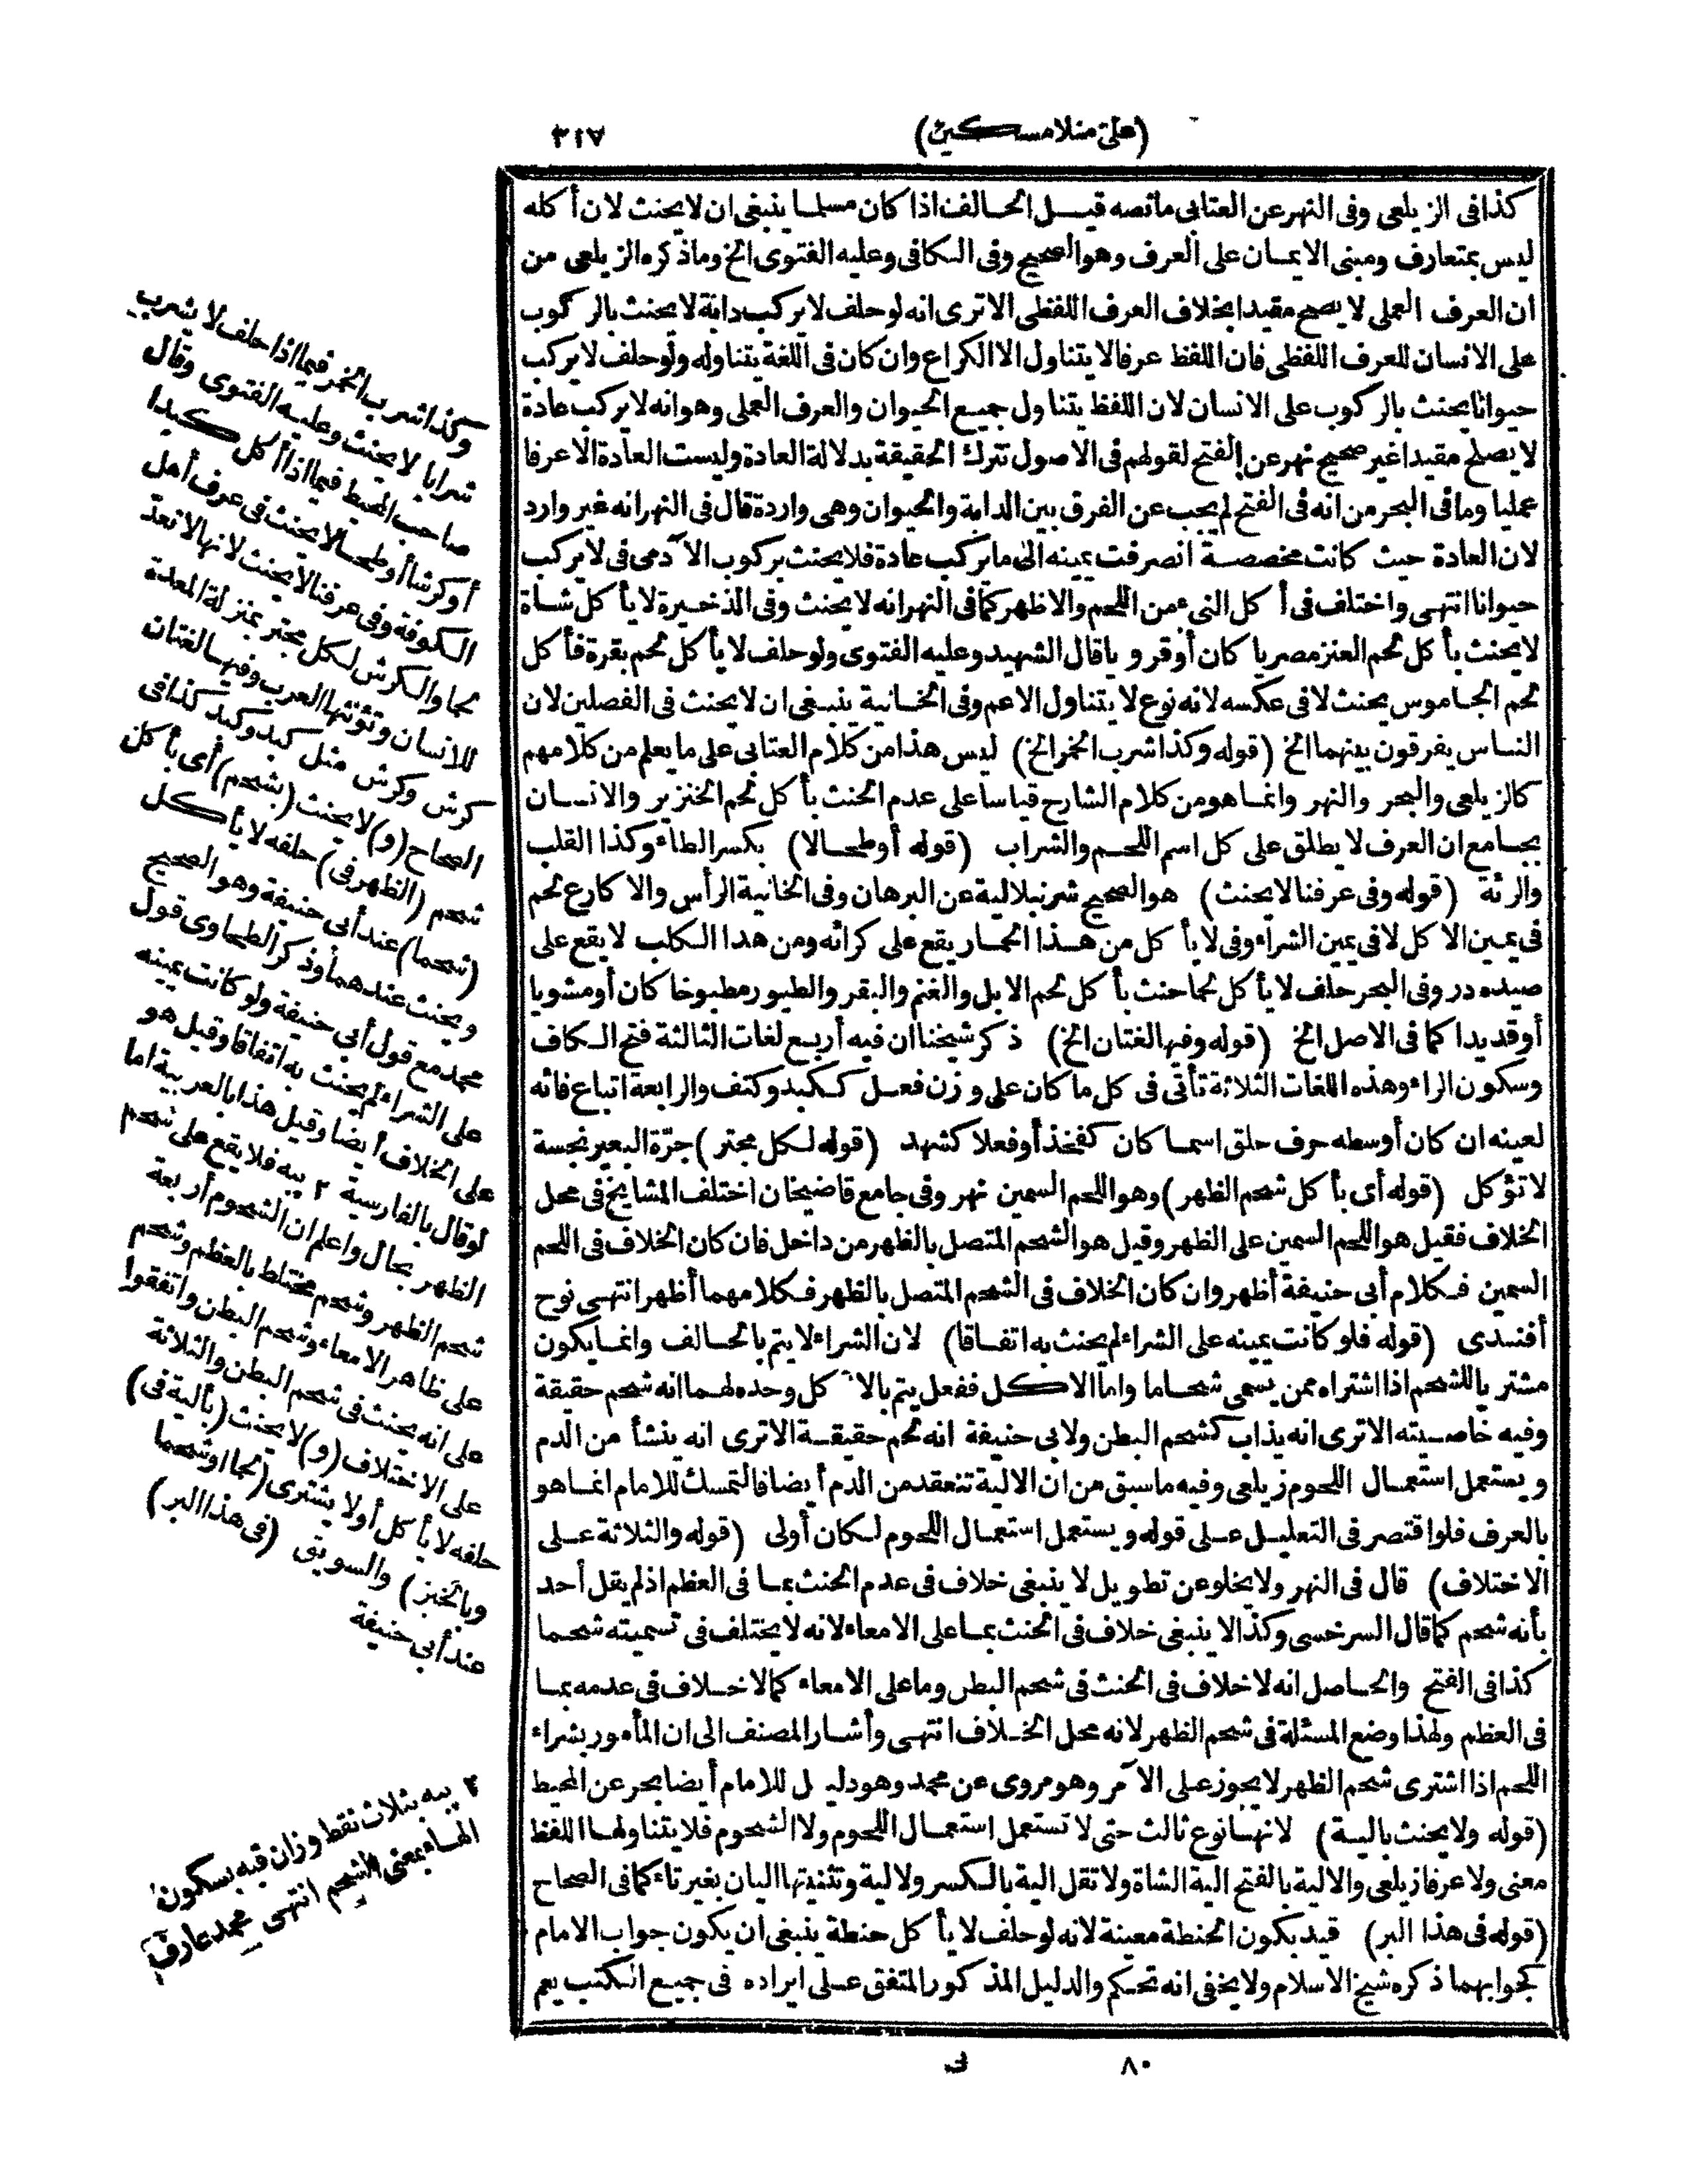 (على منلا مسكين)
٣١٧
كذا فى الزيلعى وفى النهر عن العتابى مانصه قيل الحالف اذا كان مسلما ينبغى ان لا يحنث لان أكله
ليس بمتعارف ومبنى الايمان على العرف وهو الصحيح وفى الكافى وعليه الفتوى الخ وماذكره الزيلعى من
ان العرف العملى لا يصح مقيدا بخلاف العرف اللفظى الاترى انه لو حلف لا يركب دابة لا يحنث بالركوب
على الانسان للعرف اللفظى فان اللفظ عرفا لا يتناول الا الكراع وان كان فى اللغة يتناوله ولو حلف لا يركب
حيوانا يحنث بالركوب على الانسان لان اللفظ يتناول جميع الحيوان والعرف العملى وهو انه لا يركب عادة
لا يصلح مقيدا غير صحيح نهر عن الفتح لقولهم فى الاصول تترك الحقيقة بدلالة العادة وليست العادة الا عرفا
عمليا وما فى البحر من انه فى الفتح لم يجب عن الفرق بين الدابة والحيوان وهى واردة قال فى النهر انه غير وارد
لان العادة حيث كانت مخصصة انصرفت يمينه الى ما يركب عادة فلا يحنث بركوب الآدمى فى لا يركب
حيوانا انتهى واختلف فى أكل النىء من اللحم والاظهر كما فى النهر انه لا يحنث وفى الذخيرة لا يأكل شاة
لا يحنث بأكل لحم العنز مصريا كان أو قرويا قال الشهيد وعليه الفتوى ولو حلف لا يأكل لحم بقرة فأكل
لحم الجاموس يحنث لا فى عكسه لانه نوع لا يتناول الاعم وفى الخانية ينبغى ان لا يحنث فى الفصلين لان
الناس يفرقون بينهما الخ (قوله وكذا شرب الخمر الخ) ليس هذا من كلام العتابى على ما يعلم من كلامهم
كالزيلعى والبحر والنهر وانما هو من كلام الشارح قياسا على عدم الحنث بأكل لحم الخنزير والانسان
بجامع ان العرف لا يطلق على كل اسم اللحم والشراب (قوله أو طحالا) بكسر الطاء وكذا القلب
والرئة (قوله وفى عرفنا لا يحنث) هو الصحيح شرنبلالية عن البرهان وفى الخانية الرأس والاكارع لحم
فى يمين الاكل لا فى يمين الشراء وفى لا يأكل من هذا الحمار يقع على كرائه ومن هذا الكلب لا يقع على
صيده در وفى البحر حلف لا يأكل لحما حنث بأكل لحم الابل والغنم والبقر والطيور مطبوخا كان أو مشويا
أو قديدا كما فى الاصل الخ (قوله وفيها لغتان الخ) ذكر شيخنا ان فيه أربع لغات الثالثة فتح الكاف
وسكون الراء وهذه اللغات الثلاثة تأتى فى كل ما كان على وزن فعل ككبد وكتف والرابعة اتباع فائه
لعينه ان كان أوسطه حرف حلق اسما كان كفخذ أو فعلا كشهد (قوله لكل مجتر) جرّة البعير نجسة
لا تؤكل (قوله أى بأكل شحم الظهر) وهو اللحم السمين نهر وفى جامع قاضيخان اختلف المشايخ فى محل
الخلاف فقيل هو اللحم السمين على الظهر وقيل هو الشحم المتصل بالظهر من داخل فان كان الخلاف فى اللحم
السمين فكلام أبى حنيفة أظهر وان كان الخلاف فى الشحم المتصل بالظهر فكلامهما أظهر انتهى نوح
أفندى (قوله فلو كانت يمينه على الشراء لم يحنث به اتفاقا) لان الشراء لا يتم بالحالف وانما يكون
مشتريا للشحم اذا اشتراه ممن يسمى شحاما واما الاكل ففعل يتم بالآكل وحده لهما انه شحم حقيقة
وفيه خاصيته الاترى انه يذاب كشحم البطن ولابى حنيفة انه لحم حقيقة الاترى انه ينشأ من الدم
ويستعمل استعمال اللحوم زيلعى وفيه ما سبق من ان الالية تنعقد من الدم أيضا فالتمسك للامام انما هو
بالعرف فلو اقتصر فى التعليل على قوله ويستعمل استعمال اللحوم لكان أولى (قوله والثلاثة على
الاختلاف) قال فى النهر ولا يخلو عن تطويل لا ينبغى خلاف فى عدم الحنث بما فى العظم اذ لم يقل أحد
بأنه شحم كما قال السرخسى وكذا لا ينبغى خلاف فى الحنث بما على الامعاء لانه لا يختلف فى تسميته شحما
كذا فى الفتح والحاصل انه لا خلاف فى الحنث فى شحم البطن وما على الامعاء كما لا خلاف فى عدمه بما
فى العظم ولهذا وضع المسئلة فى شحم الظهر لانه محل الخلاف انتهى وأشار المصنف الى ان المأمور بشراء
اللحم اذا اشترى شحم الظهر لا يجوز على الآمر وهو مروى عن محمد وهو دليل للامام أيضا بحر عن المحيط
(قوله ولا يحنث بالية) لانها نوع ثالث حتى لا تستعمل استعمال اللحوم ولا الشحوم فلا يتناولها اللفظ
معنى ولا عرفا زيلعى والالية بالفتح الية الشاة ولا تقل الية بالكسر ولا لية وتثنيتها اليان بغير تاء كما فى الصحاح
(قوله فى هذا البر) قيد بكون الحنطة معينة لانه لو حلف لا يأكل حنطة ينبغى ان يكون جواب الامام
كجوابهما ذكره شيخ الاسلام ولا يخفى انه تحكم والدليل المذكور المتفق على ايراده فى جميع الكتب يعم
وكذا شرب الخمر فيما اذا حلف لا يشرب
شرابا لا يحنث وعليه الفتوى وقال
صاحب المحيط فيما اذا أكل كبدا
أو كرشا أو طحالا يحنث فى عرف أهل
الكوفة وفى عرفنا لا يحنث لانها لا تعد
لحما والكرش لكل مجتر بمنزلة المعدة
للانسان وتؤنثها العرب وفيها لغتان
كرش وكرش مثل كبد وكبد كذا فى
الصحاح (و) لا يحنث (بشحم) أى بأكل
شحم (الظهر فى) حلفه لا يأكل
(شحما) عند أبى حنيفة وهو الصحيح
ويحنث عندهما وذكر الطحاوى قول
محمد مع قول أبى حنيفة ولو كانت يمينه
على الشراء لم يحنث به اتفاقا وقيل هو
على الخلاف أيضا وقيل هذا بالعربية اما
لو قال بالفارسية ٢ پيه فلا يقع على شحم
الظهر بحال واعلم ان الشحوم أربعة
شحم الظهر وشحم مختلط بالعظم وشحم
على ظاهر الامعاء وشحم البطن واتفقوا
على انه يحنث فى شحم البطن والثلاثة
على الاختلاف (و) لا يحنث (بألية فى)
حلفه لا يأكل أو لا يشترى (لحما او شحما
وبالخبز) والسويق (فى هذا البر)
عند أبى حنيفة
٢ پيه بثلاث نقط وزان فيه بسكون
الهاء بمعنى الشحم انتهى محمد عارف
٨٠
نى